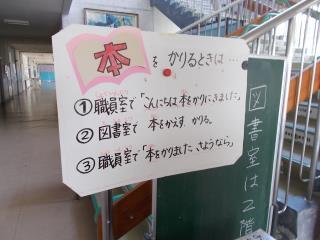 本を かりるときは…
①職員室で「こんにちは 本をかりにきました。」
②図書室で 本をかえす、かりる。
③職員室で「本をかりました。さようなら。」
図書室は2階